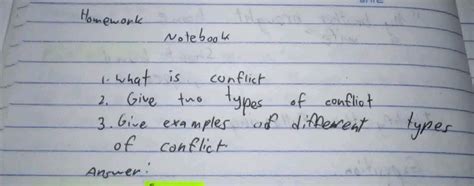 Homework
Notebook
1. What is conflict
2. Give two types of conflict
3. Give examples of different types
of conflict
Answer: